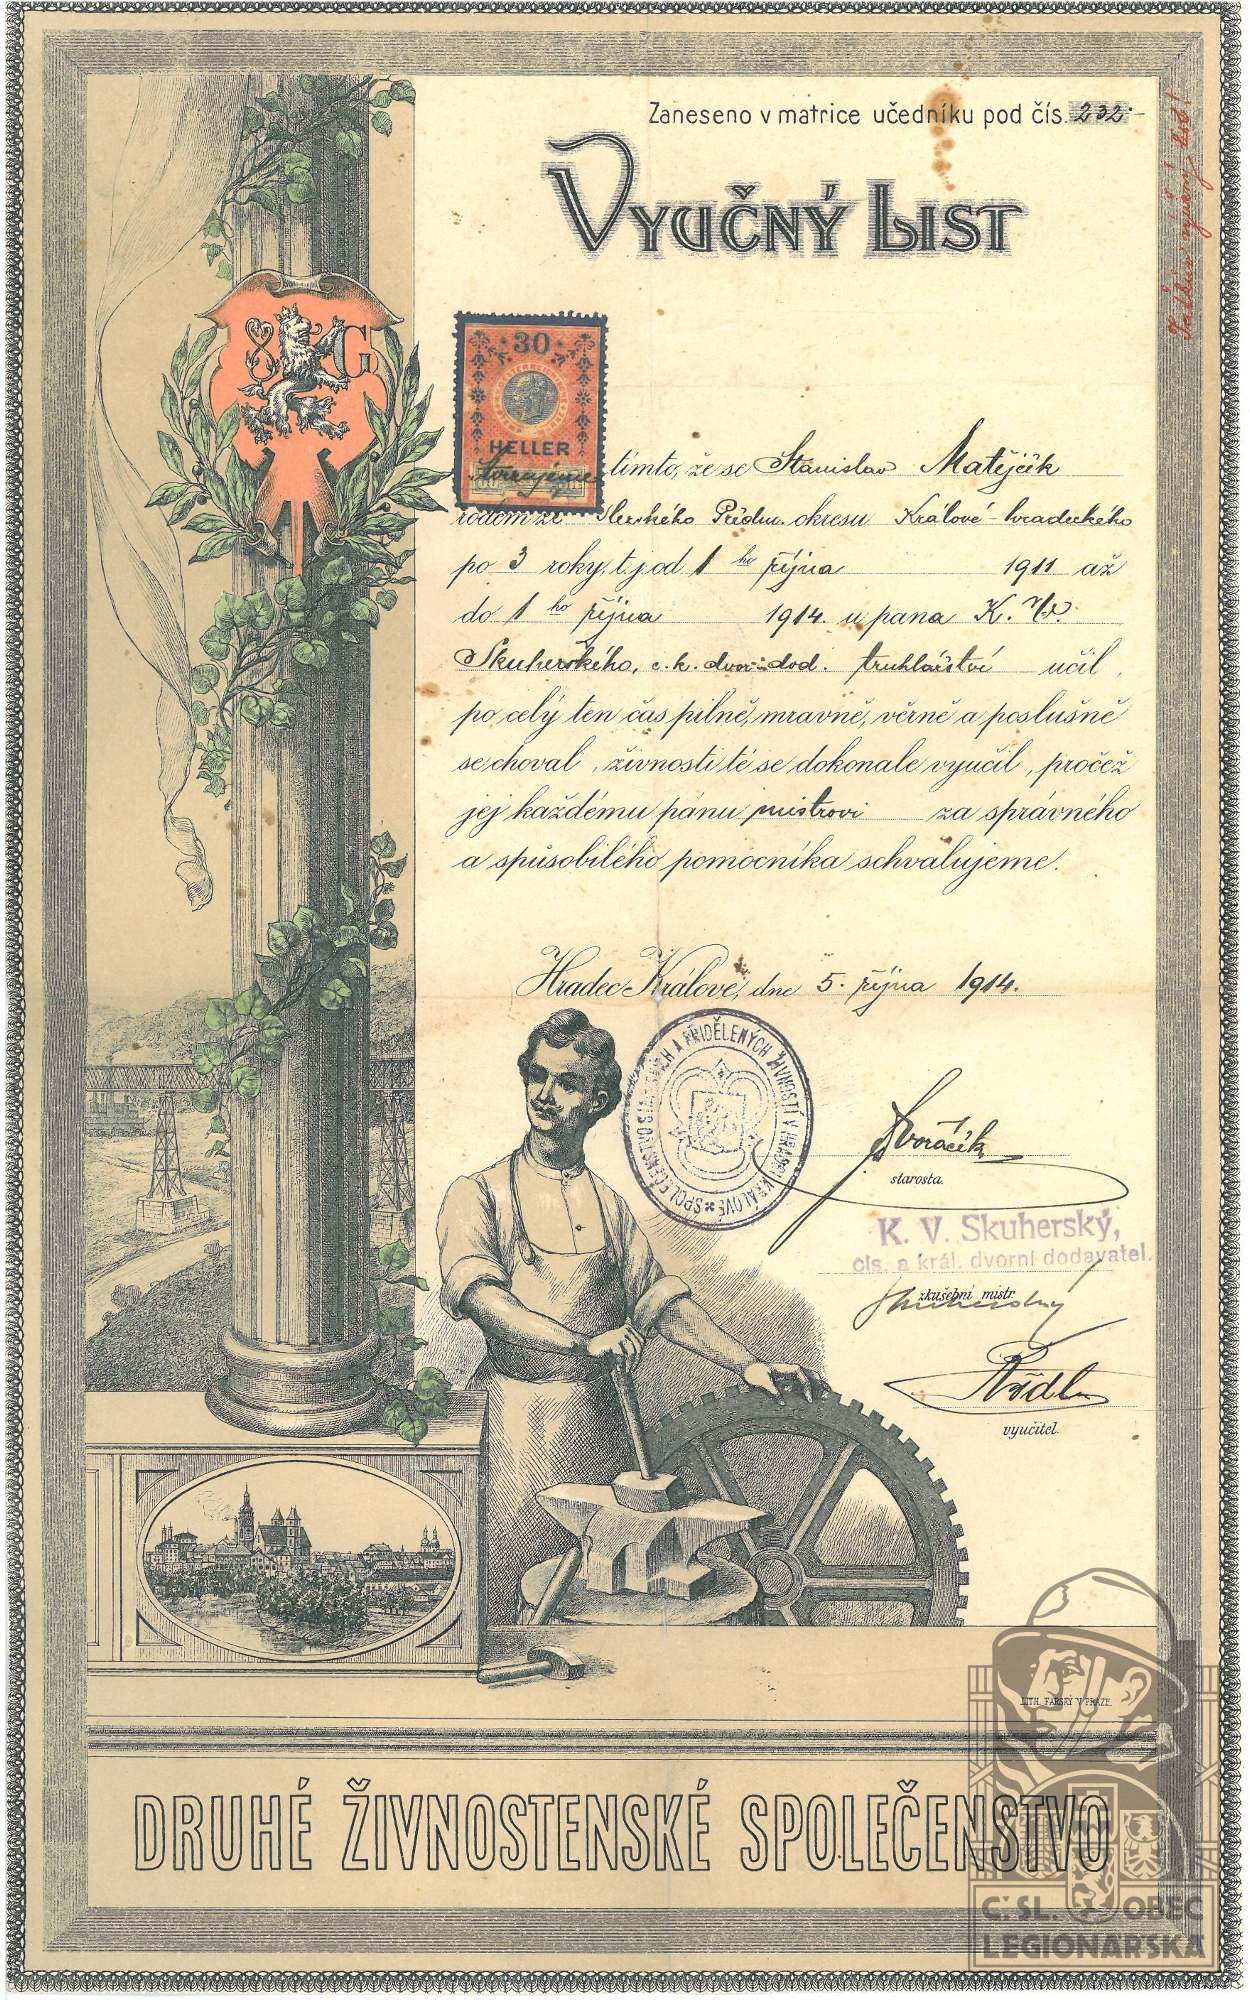 Zaneseno v matrice učedníku pod čís. 232.
Vyučný List
30
HELLER
tímto, že se Stanislav Matějčík
rodem ze Slezského Předm. okresu Králové-hradeckého
po 3 roky, t. j. od 1 ho října 1911 až
do 1 ho října 1914. u pana K. V.
Skuherského, c. k. dvor. dod. truhlářství učil,
po celý ten čas pilně, mravně, věrně a poslušně
se choval, živnosti té se dokonale vyučil, pročež
jej každému pánu mistrovi za správného
a spůsobilého pomocníka schvalujeme.
Hradec Králové, dne 5. října 1914.
A PŘIDĚLENÝCH ŽIVNOSTÍ V HRADCI KRÁLOVÉ * SPOLEČENSTVO
Dvořáček
starosta.
K. V. Skuherský,
cis. a král. dvorní dodavatel.
zkušební mistr.
Skuherský
vyučitel.
LITH. FARSKÝ V PRAZE.
DRUHÉ ŽIVNOSTENSKÉ SPOLEČENSTVO
Č. SL. OBEC
LEGIONÁŘSKÁ